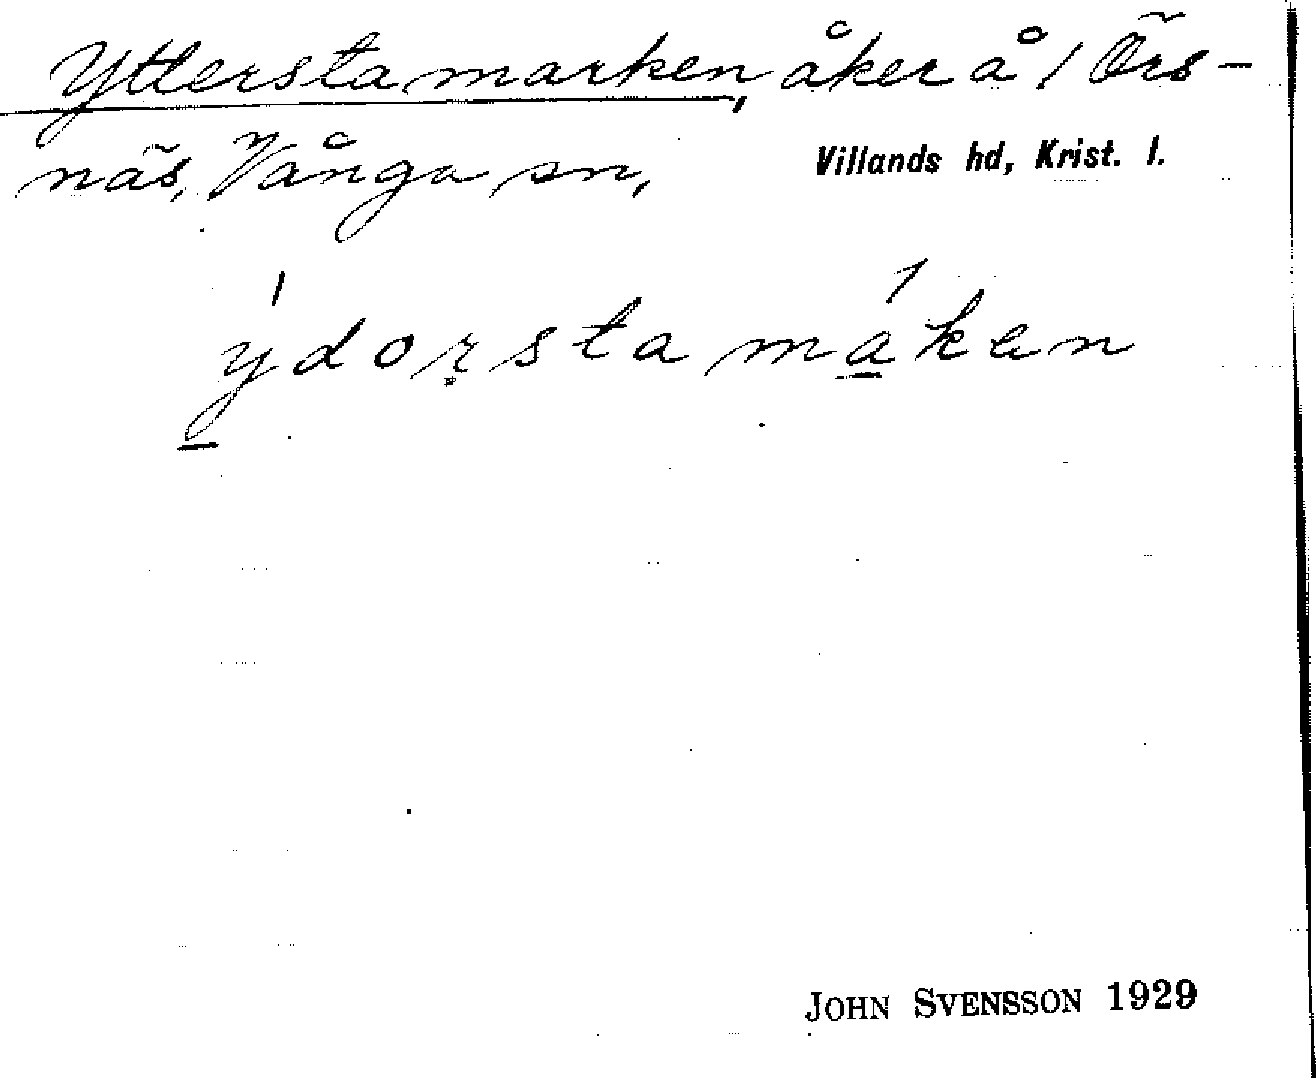 Yttersta marken, åker å 1 Örs-
näs, Vånga sn, Villands hd, Krist. l.
ydorsta maken
JOHN SVENSSON 1929